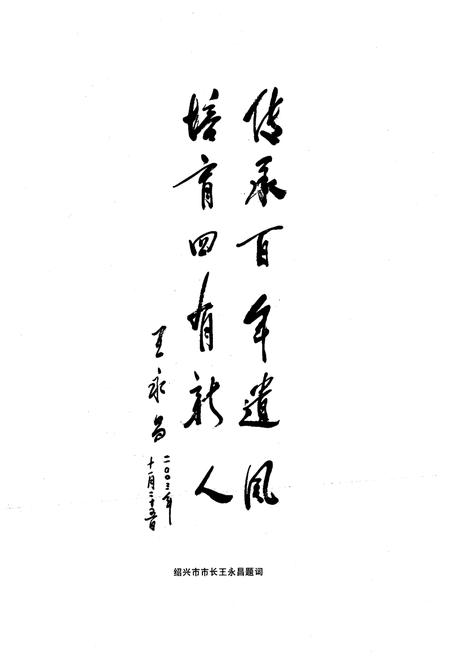 传承百年遗风
培育四有新人
王永昌
二〇〇三年
十一月二十五日
绍兴市市长王永昌题词